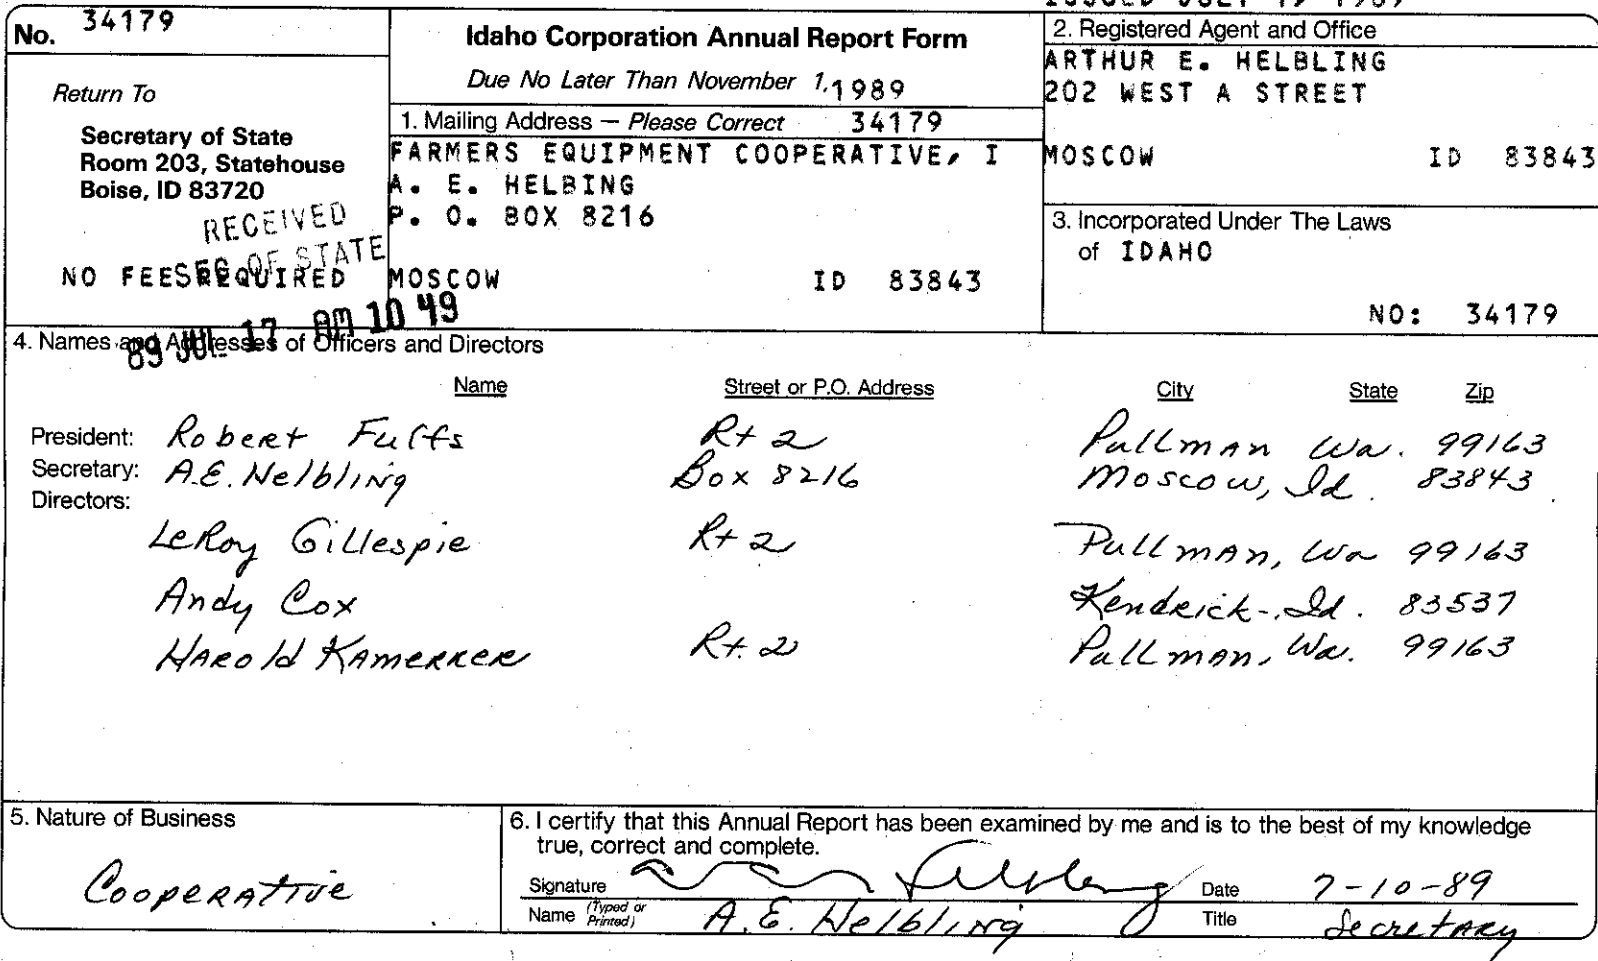 No. 34179
Return To
Secretary of State
Room 203, Statehouse
Boise, ID 83720
RECEIVED
SEC OF STATE
NO FEES REQUIRED
89 JUL 17 AM 10 49
Idaho Corporation Annual Report Form
Due No Later Than November 1, 1989
1. Mailing Address — Please Correct 34179
FARMERS EQUIPMENT COOPERATIVE, I
A. E. HELBING
P. O. BOX 8216
MOSCOW ID 83843
2. Registered Agent and Office
ARTHUR E. HELBLING
202 WEST A STREET
MOSCOW ID 83843
3. Incorporated Under The Laws
of IDAHO
NO: 34179
4. Names and Addresses of Officers and Directors
Name Street or P.O. Address City State Zip
President: Robert Rt 2 Pullman Wa. 99163
Secretary: A.E. Helbling Box 8216 Moscow, Id. 83843
Directors:
LeRoy Gillespie Rt 2 Pullman, Wa 99163
Andy Cox Kendrick, Id. 83537
Harold Kamerrer Rt. 2 Pullman, Wa. 99163
5. Nature of Business
Cooperative
6. I certify that this Annual Report has been examined by me and is to the best of my knowledge
true, correct and complete.
Signature Date 7-10-89
Name (Typed or Printed) A.E. Helbling Title Secretary